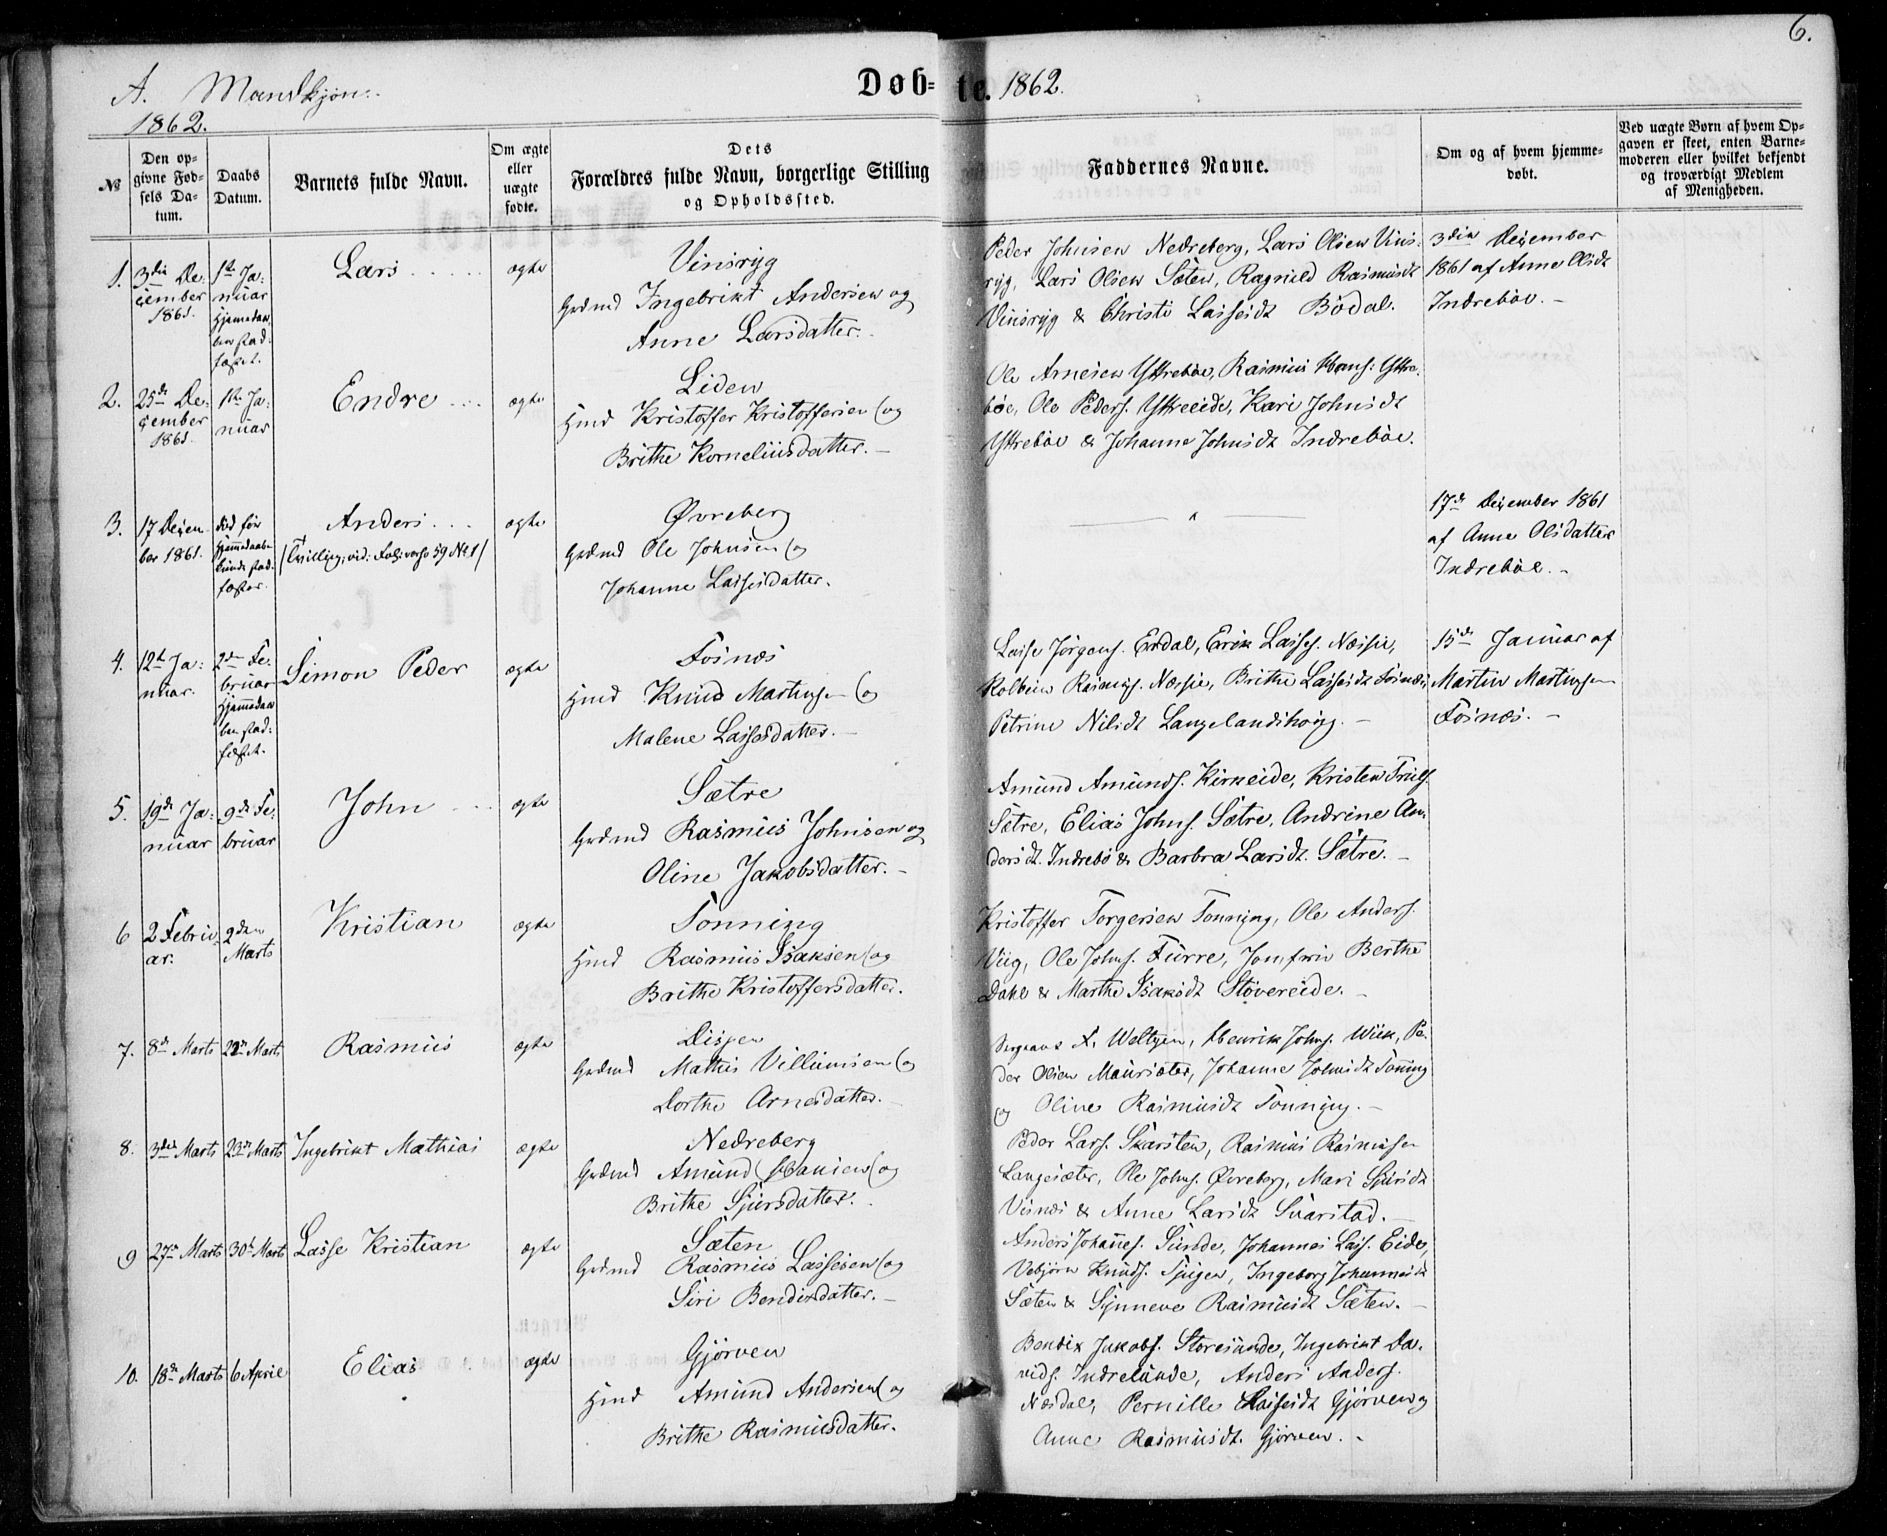 6.
A. Mandkjøn.
Døb=te. 1862.
1862.
№
Den op=
givne Fød=
sels Da=
tum.
Daabs
Datum.
Barnets fulde Navn.
Om ægte
eller
uægte
fødte.
Dets
Forældres fulde Navn, borgerlige Stilling
og Opholdssted.
Faddernes Navne.
Om og af hvem hjemme=
døbt.
Ved uægte Børn af hvem Op=
gaven er skeet, enten Barne=
moderen eller hvilket bekjendt
og troværdigt Medlem
af Menigheden.
1.
3die De=
cember
1861.
1ste Ja=
nuar
Hjemmedaa=
ben stad=
fæstet.
Lars
ægte
Vinsryg
Grdmd Ingebrikt Andersen og
Anne Larsdatter.
Peder Johnsen Nedreberg, Lars Olsen Vins=
ryg, Lars Olsen Sæten, Ragnild Rasmusdt
Vinsryg & Christi Lassesdt Bødal.
3die December
1861 af Anne Olsdt
Indrebøe.
2.
25de De=
cember
1861.
1ste Ja=
nuar
Endre
ægte
Liden
Hmd Kristoffer Kristoffersen og
Brithe Korneliusdatter.
Ole Arnesen Yttrebøe, Rasmus Hans. Yttre=
bøe, Ole Peders. Yttreeide, Kari Johnsdt
Yttrebøe & Johanne Johnsdt Indrebøe.
3.
17 Decem
ber 1861.
død før
Hjemmedaaben
kunde stad=
fæstes.
Anders
(Tvilling, vid. Fol: verso 59 № 1)
ægte
Øvreberg
Grdmd Ole Johnsen og
Johanne Lassesdatter.
17de December 1861
af Anne Olsdatter
Indrebøe.
4.
12te Ja=
nuar.
2den Fe=
bruar
Hjemmedaa
ben stad=
fæstet.
Simon Peder
ægte
Fosnæs
Hmd Knud Martinsen og
Malene Lassesdatter.
Lasse Jørgens. Erdal, Erik Lasses. Næsje,
Kolbein Rasmus. Næsje, Brithe Lassesdt Fosnæs,
Petrine Nilsdt Langelandshoug.
15de Januar af
Martin Martinsen
Fosnæs.
5.
19de Ja=
nuar
9de Fe=
bruar
John
ægte
Sætre
Grdmd Rasmus Johnsen og
Oline Jakobsdatter.
Amund Amunds. Kirkeide, Kristen Truls.
Sætre, Elias Johns. Sætre, Andrine An=
dersdt. Indrebø & Barbra Larsdt. Sætre.
6
2 Febru=
ar.
2den
Marts
Kristian
ægte
Tonning
Hmd Rasmus Isaksen og
Brithe Kristoffersdatter.
Kristoffer Torgersen Tonning, Ole Anders.
Viig, Ole Johns. Furre, Jomfru Berthe
Dahl & Marthe Isaksdt Støvereide.
7.
8de Marts
Marts
Rasmus
ægte
Grdmd Mathis Villumsen og
Dorthe Arnesdatter.
Sergeant Weltzin, Henrik Johns. Wiik, Pe=
der Olsen Maursæter, Johanne Johnsdt Tonning
og Oline Rasmusdt Tonning.
8.
3die Marts
23de Marts
Ingebrikt Mathias
ægte
Nedreberg
Grdmd Amund Hansen og
Brithe Sjursdatter.
Peder Lars. Skarsten, Rasmus Rasmusen
Langesæter, Ole Johns. Øvreberg, Mari Sjursdt
Visnæs & Anne Larsdt Svarstad.
9
27de Marts
30te Marts
Lasse Kristian
ægte
Sæten
Grdmd Rasmus Lassesen og
Siri Bendixdatter.
Anders Johannes. Sunde, Johannes Lass. Eide,
Vebjørn Knuds. Tjugen, Ingeborg Johannesdt
Sæten & Synneve Rasmusdt Sæten.
10.
18de Marts
6 April
Elias
ægte
Gjørven
Hmd Amund Andersen og
Brithe Rasmusdatter.
Bendix Jakobs. Storesunde, Ingebrikt Da=
vids. Indrelunde, Anders Anders.
Næsdal, Pernille Lassesdt Gjørven og
Anne Rasmusdt. Gjørven.